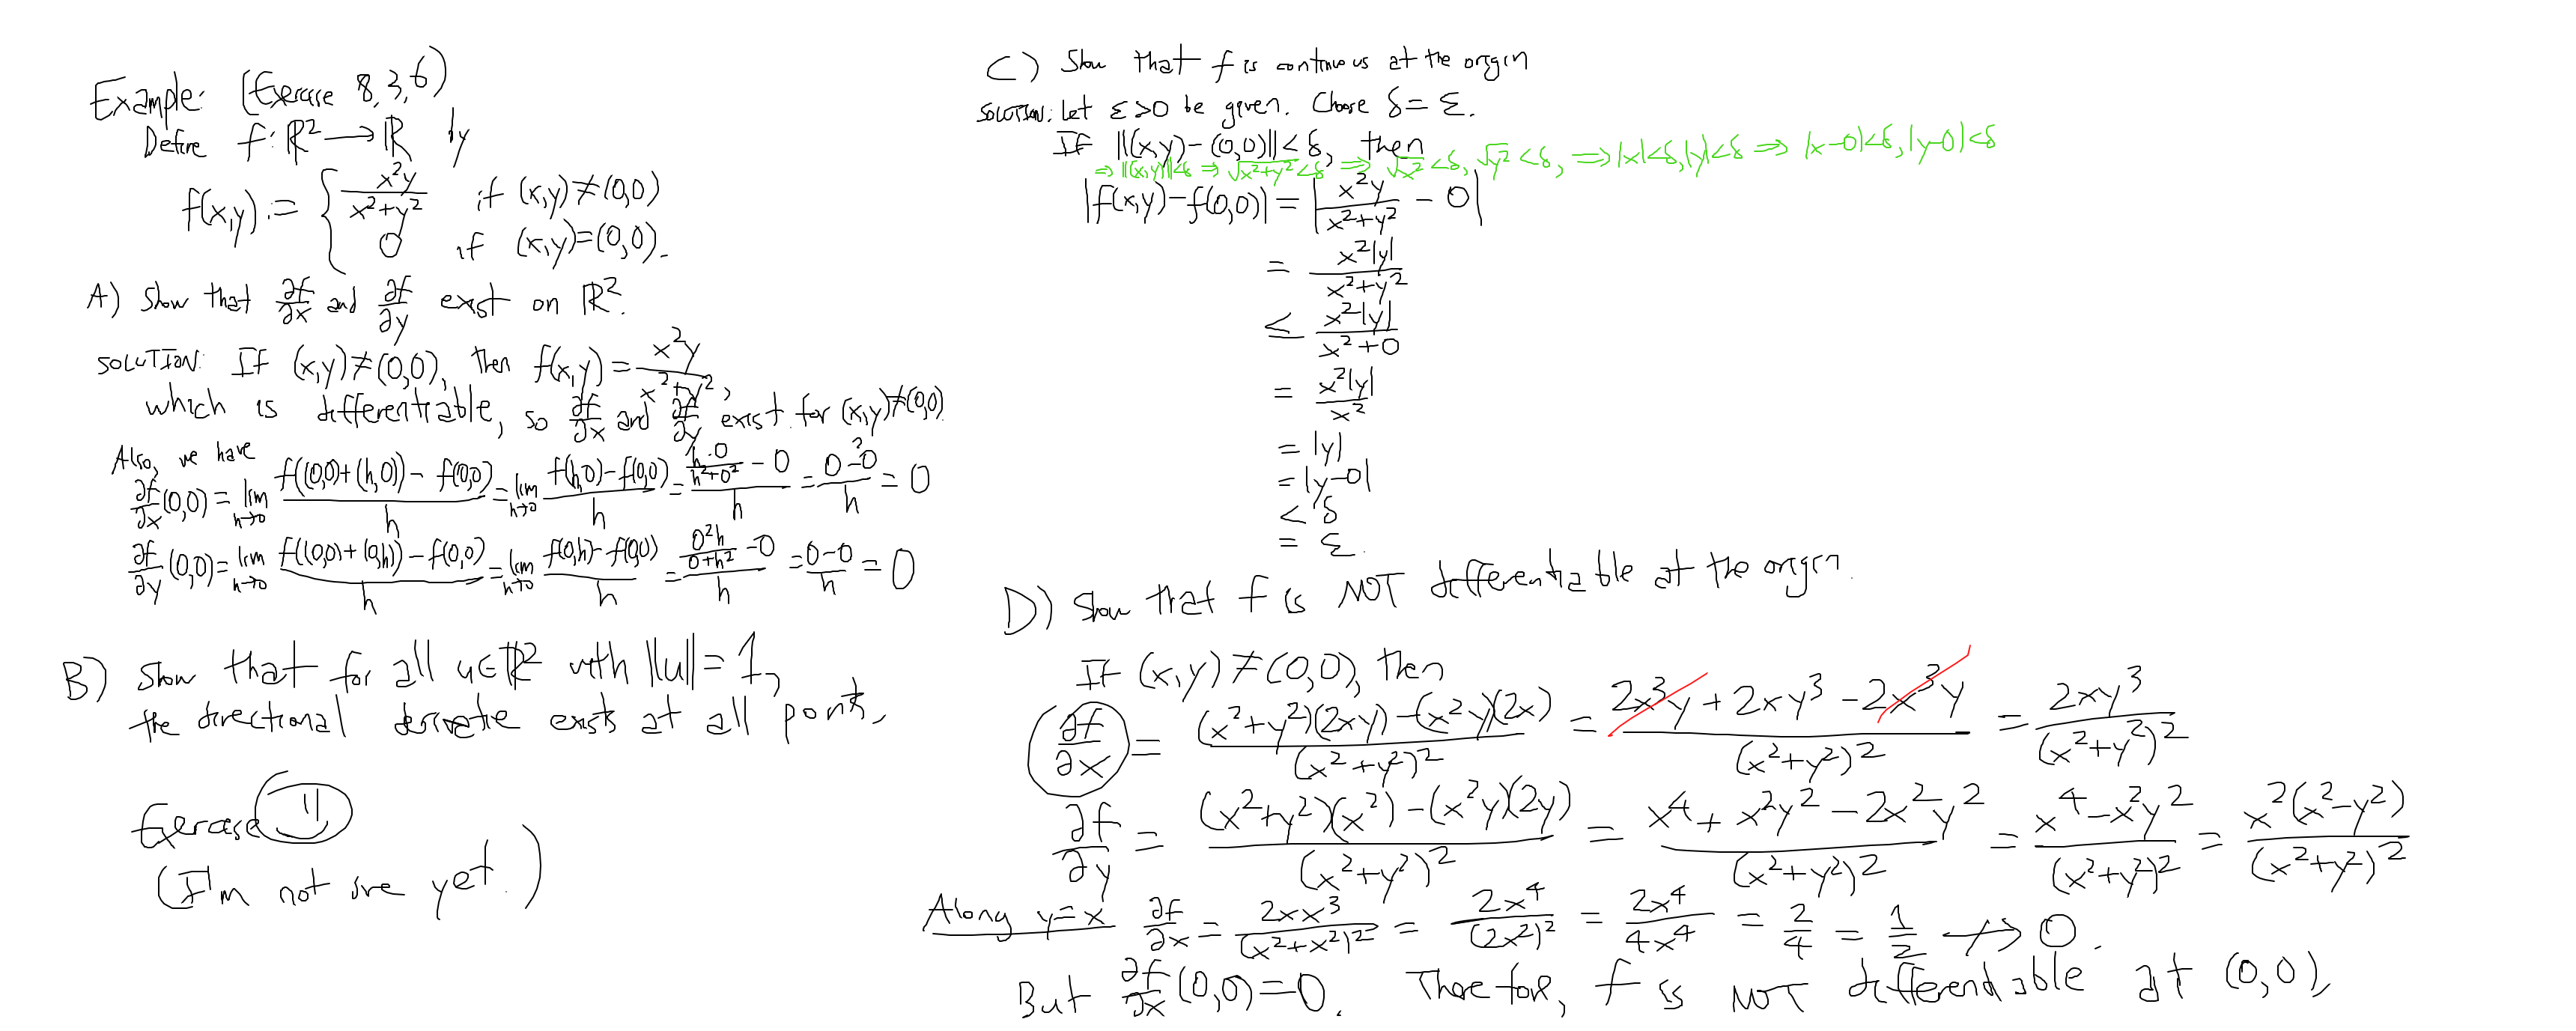 Example: (Exercise 8.3.6)
Define f: ℝ² → ℝ by
f(x,y) := { x²y/(x²+y²) if (x,y)≠(0,0)
0 if (x,y)=(0,0).
A) Show that ∂f/∂x and ∂f/∂y exist on ℝ².
SOLUTION: If (x,y)≠(0,0), then f(x,y) = x²y/(x²+y²),
which is differentiable, so ∂f/∂x and ∂f/∂y exist for (x,y)≠(0,0)
Also, we have
∂f/∂x (0,0) = lim h→0 (f((0,0)+(h,0)) - f(0,0))/h = lim h→0 (f(h,0)-f(0,0))/h = (h²·0/(h²+0²) - 0)/h = (0-0)/h = 0
∂f/∂y (0,0) = lim h→0 (f((0,0)+(0,h)) - f(0,0))/h = lim h→0 (f(0,h)-f(0,0))/h = (0²h/(0+h²) - 0)/h = (0-0)/h = 0
B) Show that for all u∈ℝ² with ||u|| = 1,
the directional derivative exists at all points.
Exercise
(I'm not sure yet.)
C) Show that f is continuous at the origin
SOLUTION: Let ε>0 be given. Choose δ = ε.
If ||(x,y)-(0,0)|| < δ, then
⇒ ||(x,y)||<δ ⇒ √(x²+y²) <δ ⇒ √x² <δ, √y² <δ, ⇒ |x|<δ, |y|<δ ⇒ |x-0|<δ, |y-0|<δ
|f(x,y)-f(0,0)| = |x²y/(x²+y²) - 0|
= x²|y|/(x²+y²)
≤ x²|y|/(x²+0)
= x²|y|/x²
= |y|
= |y-0|
< δ
= ε.
D) Show that f is NOT differentiable at the origin.
If (x,y)≠(0,0), then
∂f/∂x = ((x²+y²)(2xy) - (x²y)(2x))/(x²+y²)² = (2x³y + 2xy³ - 2x³y)/(x²+y²)² = 2xy³/(x²+y²)²
∂f/∂y = ((x²+y²)(x²) - (x²y)(2y))/(x²+y²)² = (x⁴ + x²y² - 2x²y²)/(x²+y²)² = (x⁴ - x²y²)/(x²+y²)² = x²(x²-y²)/(x²+y²)²
Along y=x ∂f/∂x = 2xx³/(x²+x²)² = 2x⁴/(2x²)² = 2x⁴/4x⁴ = 2/4 = 1/2 ↛ 0.
But ∂f/∂x (0,0)=0. Therefore, f is NOT differentiable at (0,0).